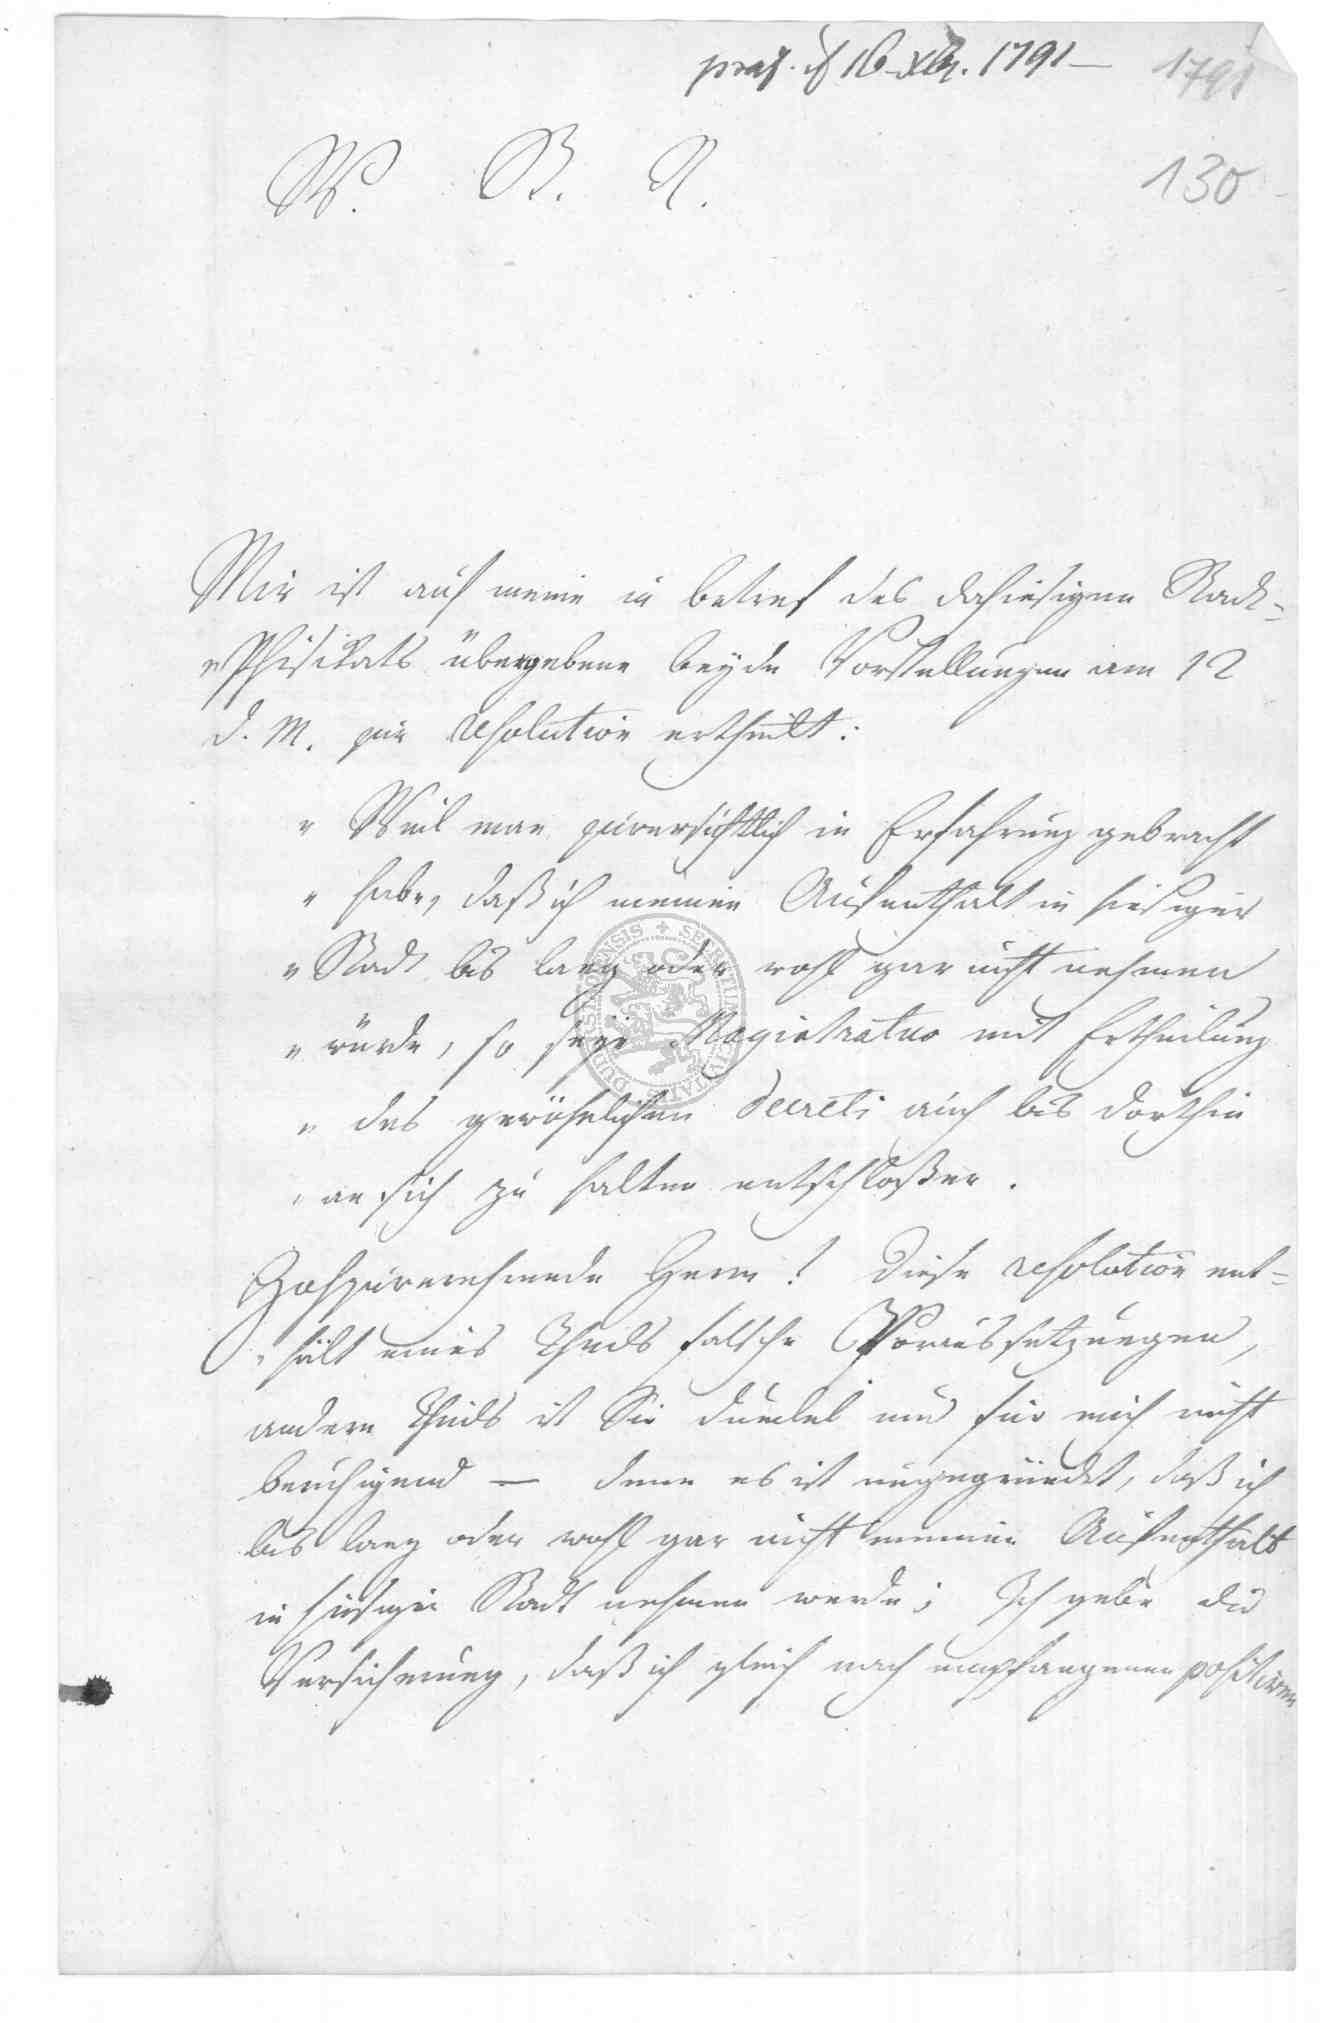 præs. d 16 Xbr. 1791
1791
W. B. R.
130
Mir ist auf meine in betref des dahiesigen Stadt=
"Phisikats übergebene beyde Vorstellungen am 12
d. M. zur resolution ertheilt:
" Weil man zuversichtlich in Erfahrung gebracht
" habe, daß ich meinen Aufenthalt in hiesiger
" Stadt bis lang oder wohl gar nicht nehmen
" würde, so seye Magistratus mit Ertheilung
" des gewöhnlichen Decreti auch bis dorthin
" an sich zu halten entschloßen.
Hochzuverehrende Herrn! Diese resolution ent=
"hält eines Theils falsche Voraussetzungen,
andern Theils ist Sie dunkel und für mich nicht
beruhigend — denn es ist ungegründet, daß ich
bis lang oder wohl gar nicht meinen Aufenthalt
in hiesiger Stadt nehmen werde; Ich gebe die
Versicherung, daß ich gleich nach empfangenen positiven
DUSSELDORPENSIS + SIGILLUM CIVITATIS